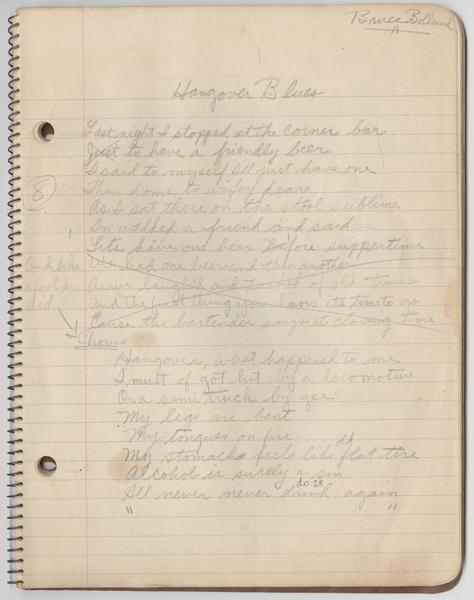 Bruce Bollerud
"
Hangover Blues
Last night I stopped at the corner bar
Just to have a friendly beer
I said to myself I'll just have one
Then home to wifey dear
As I sat there on the stool sublime
In walked a friend and said
Lets have one beer before suppertime
We had one beer and then another
As we laughed and talked of old times
And the first thing you know its time to go
Cause the bartender says it closing time
8
And like
a fool I
did
Chorus
Hangover, what happened to me
I must of got hit by a locomotive
Or a semi truck by gee
My legs are bent
My tongues on fire
My stomachs feels like flat tire
Alcohol is surely a sin
I'll never never drink again
" "